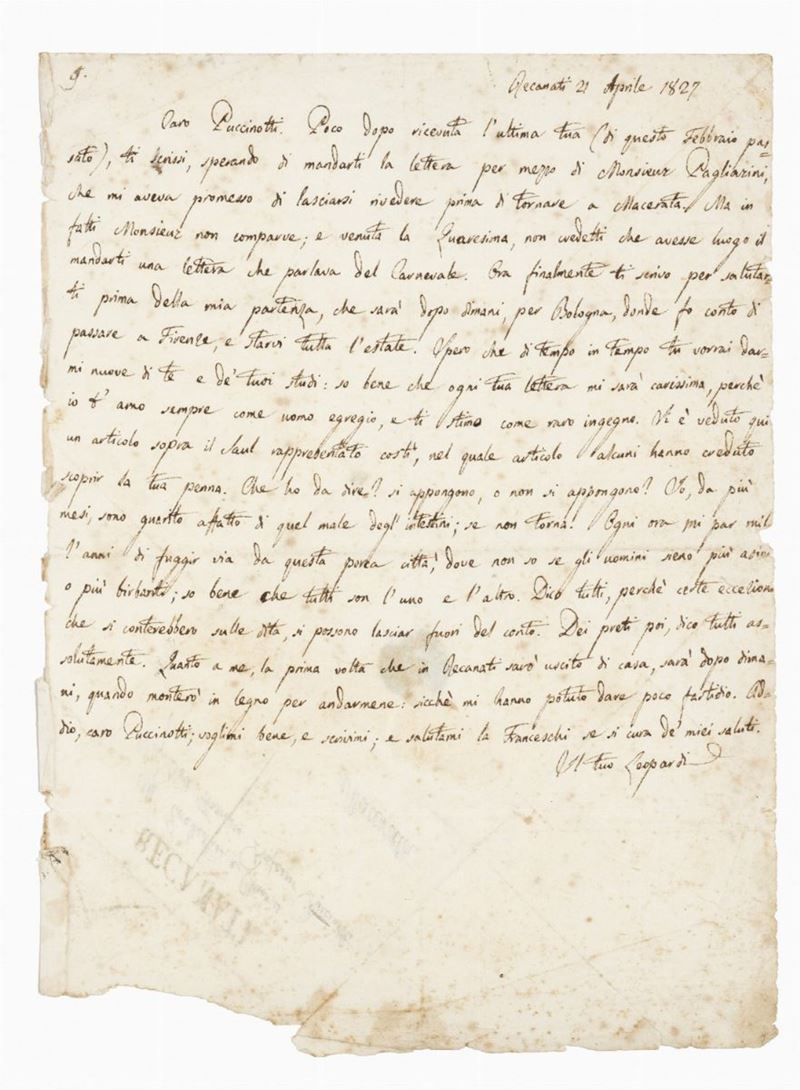 9.
Recanati 21 Aprile 1827
Caro Puccinotti. Poco dopo ricevuta l'ultima tua (di questo Febbraio pas=
sato), ti scrissi, sperando di mandarti la lettera per mezzo di Monsieur Pagliarini,
che mi aveva promesso di lasciarsi rivedere prima di tornare a Macerata. Ma in
fatti Monsieur non comparve; e venuta la Quaresima, non credetti che avesse luogo il
mandarti una lettera che parlava del Carnevale. Ora finalmente ti scrivo per salutar=
ti prima della mia partenza, che sarà dopo dimani, per Bologna, donde fo conto di
passare a Firenze, e starvi tutta l'estate. Spero che di tempo in tempo tu vorrai dar=
mi nuove di te e de' tuoi studi: so bene che ogni tua lettera mi sarà carissima, perchè
io t'amo sempre come uomo egregio, e ti stimo come raro ingegno. Si è veduto qui
un articolo sopra il Saul rappresentato costì, nel quale articolo alcuni hanno creduto
scoprir la tua penna. Che ho da dire? si appongono, o non si appongono? Io, da più
mesi, sono guarito affatto di quel male degl'intestini; se non torna. Ogni ora mi par mil
l'anni di fuggir via da questa porca città, dove non so se gli uomini sieno più asini
o più birbanti; so bene che tutti son l'uno e l'altro. Dico tutti, perchè certe eccezioni
che si conterebbero sulle dita, si possono lasciar fuori del conto. Dei preti poi, dico tutti as=
solutamente. Quanto a me, la prima volta che in Recanati sarò uscito di casa, sarà dopo dima=
ni, quando monterò in legno per andarmene: sicchè mi hanno potuto dare poco fastidio. Ad=
dio, caro Puccinotti; voglimi bene, e scrivimi; e salutami la Franceschi se si cura de' miei saluti.
Il tuo Leopardi
RECANATI